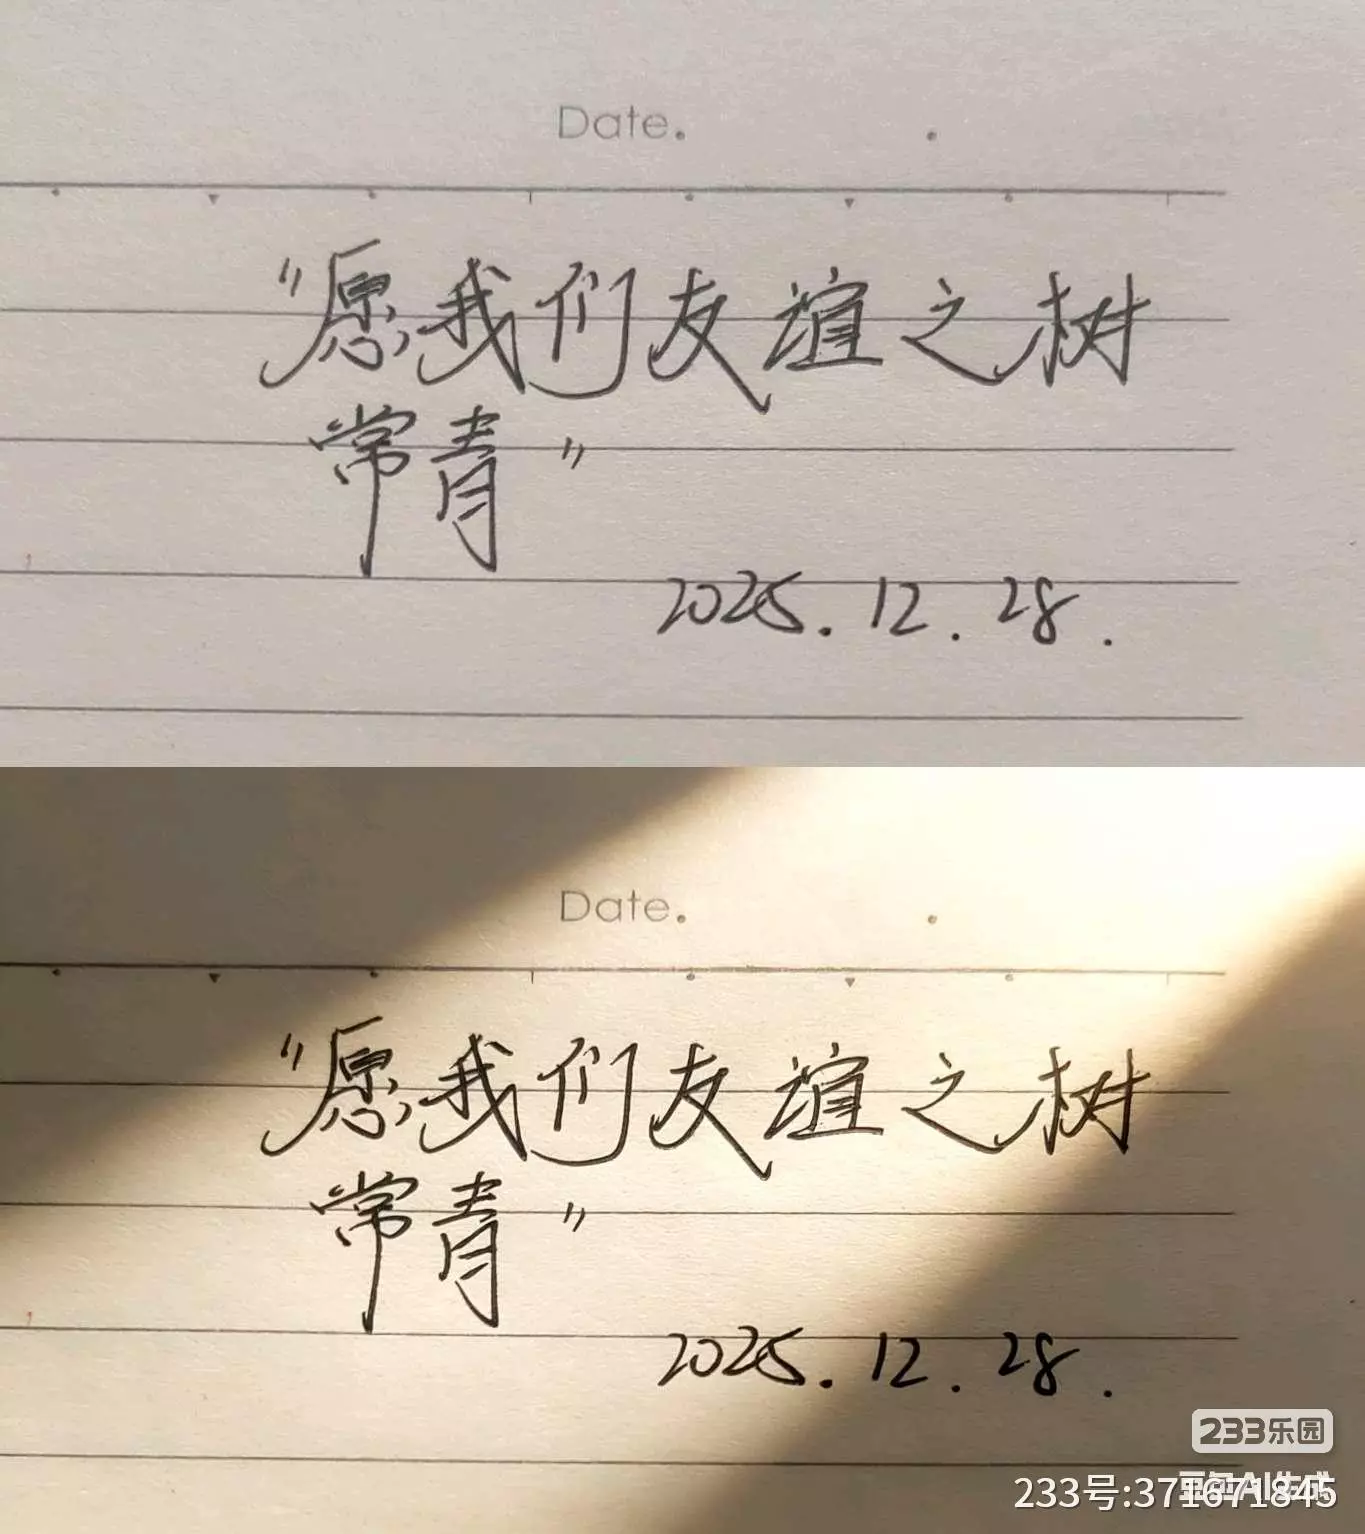 Date.
"愿我们友谊之树
常青"
2025.12.28.
Date.
"愿我们友谊之树
常青"
2025.12.28.
233乐园
豆包AI生成
233号:371671845